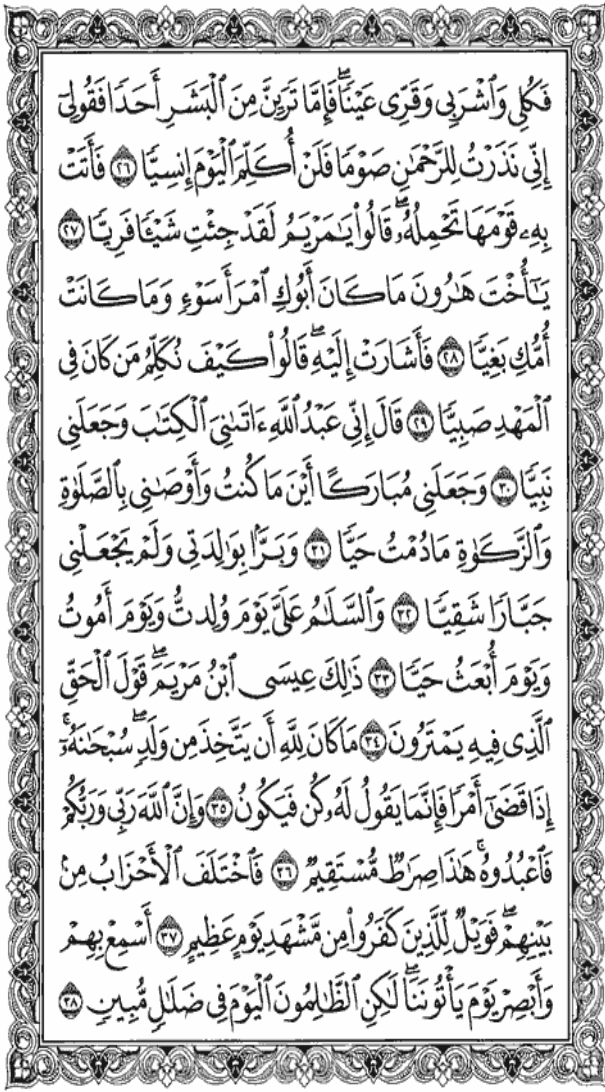 فَكُلِي وَٱشۡرَبِي وَقَرِّي عَيۡنٗاۖ فَإِمَّا تَرَيِنَّ مِنَ ٱلۡبَشَرِ أَحَدٗا فَقُولِيٓ
إِنِّي نَذَرۡتُ لِلرَّحۡمَٰنِ صَوۡمٗا فَلَنۡ أُكَلِّمَ ٱلۡيَوۡمَ إِنسِيّٗا ٢٦ فَأَتَتۡ
بِهِۦ قَوۡمَهَا تَحۡمِلُهُۥۖ قَالُواْ يَٰمَرۡيَمُ لَقَدۡ جِئۡتِ شَيۡـٔٗا فَرِيّٗا ٢٧
يَٰٓأُخۡتَ هَٰرُونَ مَا كَانَ أَبُوكِ ٱمۡرَأَ سَوۡءٖ وَمَا كَانَتۡ
أُمُّكِ بَغِيّٗا ٢٨ فَأَشَارَتۡ إِلَيۡهِۖ قَالُواْ كَيۡفَ نُكَلِّمُ مَن كَانَ فِي
ٱلۡمَهۡدِ صَبِيّٗا ٢٩ قَالَ إِنِّي عَبۡدُ ٱللَّهِ ءَاتَىٰنِيَ ٱلۡكِتَٰبَ وَجَعَلَنِي
نَبِيّٗا ٣٠ وَجَعَلَنِي مُبَارَكًا أَيۡنَ مَا كُنتُ وَأَوۡصَٰنِي بِٱلصَّلَوٰةِ
وَٱلزَّكَوٰةِ مَا دُمۡتُ حَيّٗا ٣١ وَبَرَّۢا بِوَٰلِدَتِي وَلَمۡ يَجۡعَلۡنِي
جَبَّارٗا شَقِيّٗا ٣٢ وَٱلسَّلَٰمُ عَلَيَّ يَوۡمَ وُلِدتُّ وَيَوۡمَ أَمُوتُ
وَيَوۡمَ أُبۡعَثُ حَيّٗا ٣٣ ذَٰلِكَ عِيسَى ٱبۡنُ مَرۡيَمَۖ قَوۡلَ ٱلۡحَقِّ
ٱلَّذِي فِيهِ يَمۡتَرُونَ ٣٤ مَا كَانَ لِلَّهِ أَن يَتَّخِذَ مِن وَلَدٖۖ سُبۡحَٰنَهُۥٓۚ
إِذَا قَضَىٰٓ أَمۡرٗا فَإِنَّمَا يَقُولُ لَهُۥ كُن فَيَكُونُ ٣٥ وَإِنَّ ٱللَّهَ رَبِّي وَرَبُّكُمۡ
فَٱعۡبُدُوهُۚ هَٰذَا صِرَٰطٞ مُّسۡتَقِيمٞ ٣٦ فَٱخۡتَلَفَ ٱلۡأَحۡزَابُ مِنۢ
بَيۡنِهِمۡۖ فَوَيۡلٞ لِّلَّذِينَ كَفَرُواْ مِن مَّشۡهَدِ يَوۡمٍ عَظِيمٍ ٣٧ أَسۡمِعۡ بِهِمۡ
وَأَبۡصِرۡ يَوۡمَ يَأۡتُونَنَاۖ لَٰكِنِ ٱلظَّٰلِمُونَ ٱلۡيَوۡمَ فِي ضَلَٰلٖ مُّبِينٖ ٣٨